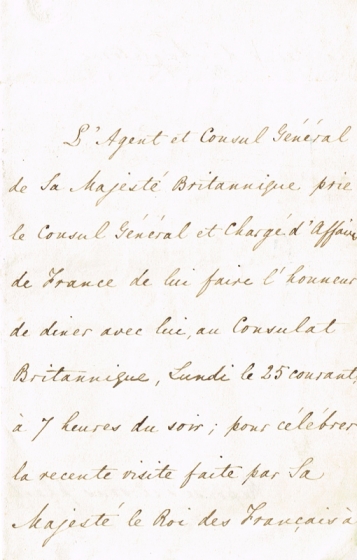 L'Agent et Consul Général
de Sa Majesté Britannique prie
le Consul Général et Chargé d'Affaires
de France de lui faire l'honneur
de diner avec lui, au Consulat
Britannique, Lundi le 25 courant,
à 7 heures du soir; pour célébrer
la recente visite faite par Sa
Majesté le Roi des Français à